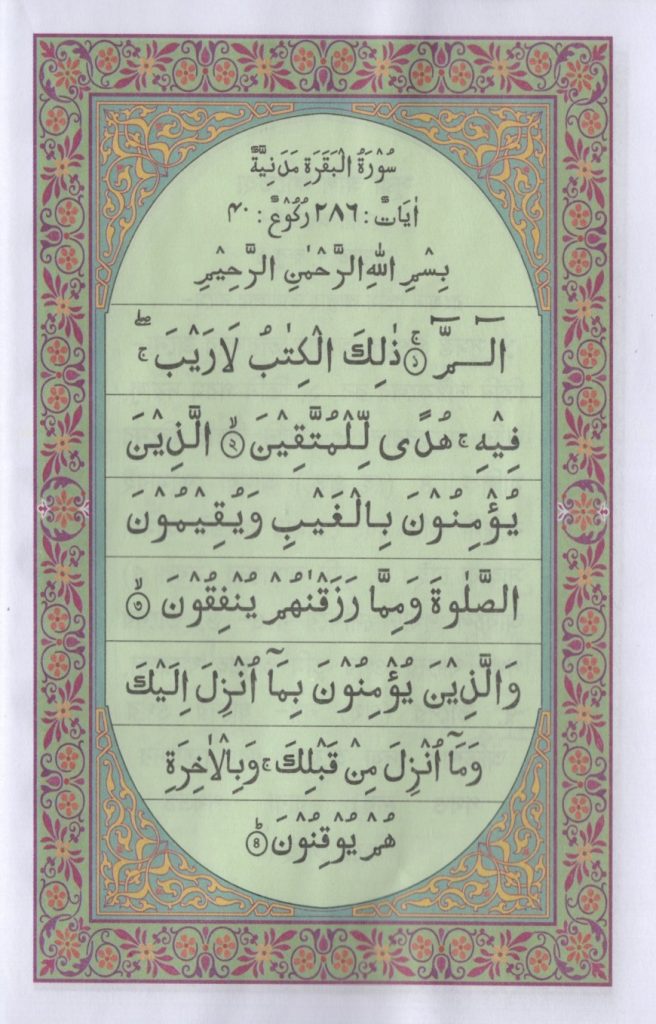 سُوْرَةُ الْبَقَرَةِ مَدَنِيَّةٌ
اٰيَاتٌ : ٢٨٦ رُكُوْعٌ : ۴۰
بِسْمِ اللهِ الرَّحْمٰنِ الرَّحِيْمِ
الٓـمّٓ ۚ﴿۱﴾ ذٰلِكَ الْكِتٰبُ لَا رَيْبَ ۛۖۚ
فِيْهِ ۚ هُدًى لِّلْمُتَّقِيْنَ ۙ﴿۲﴾ الَّذِيْنَ
يُؤْمِنُوْنَ بِالْغَيْبِ وَيُقِيْمُوْنَ
الصَّلٰوةَ وَمِمَّا رَزَقْنٰهُمْ يُنْفِقُوْنَ ۙ﴿۳﴾
وَالَّذِيْنَ يُؤْمِنُوْنَ بِمَآ اُنْزِلَ اِلَيْكَ
وَمَآ اُنْزِلَ مِنْ قَبْلِكَ ۚ وَبِالْاٰخِرَةِ
هُمْ يُوْقِنُوْنَ ؕ﴿۴﴾